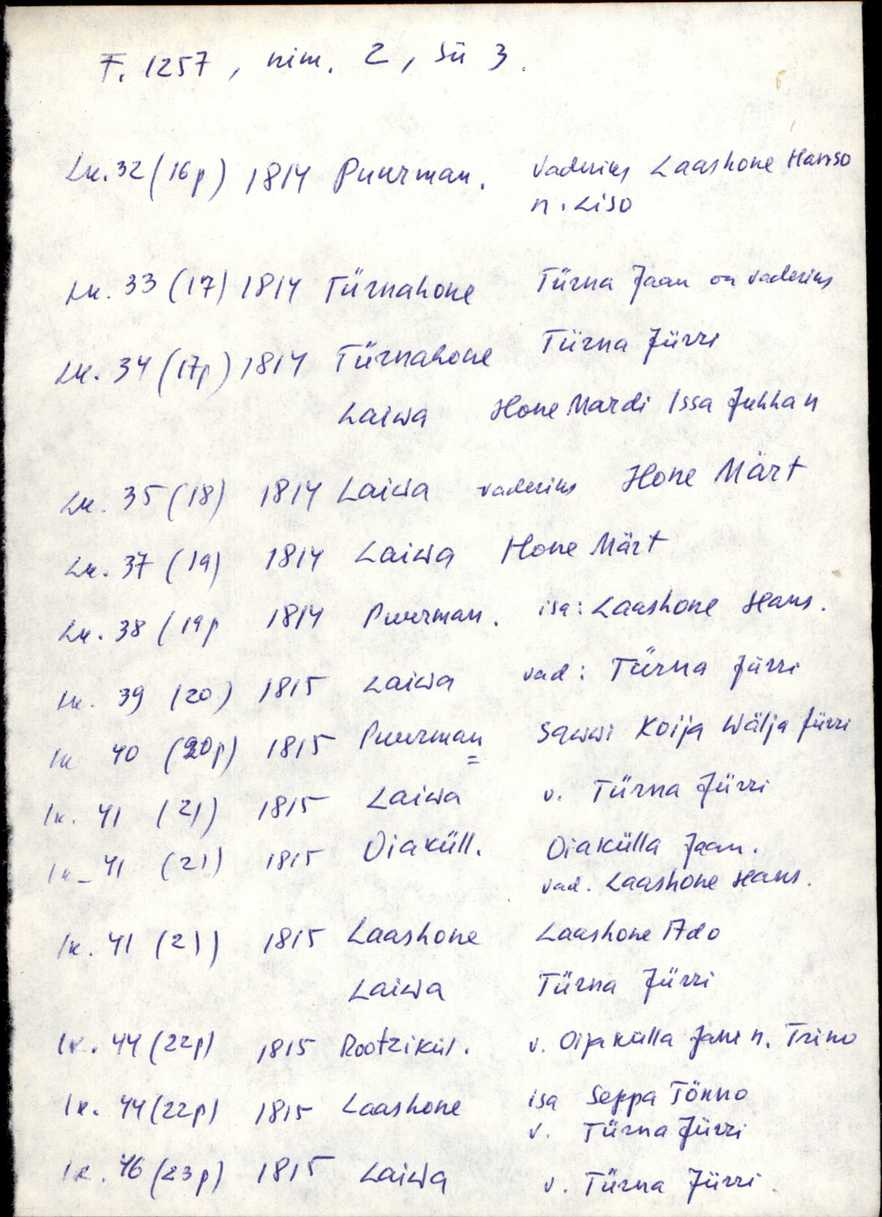 F. 1257, nim. 2, sü 3.
Lk. 32 (16p) 1814 Puurman. vaderiks Laashone Hanso
n. Liso
Lk. 33 (17) 1814 Türnahone Türna Jaan on vaderiks
Lk. 34 (17p) 1814 Türnahone Türna Jürri
Laiwa Hone Mardi Issa Juhhan
Lk. 35 (18) 1814 Laiwa vaderiks Hone Märt
Lk. 37 (19) 1814 Laiwa Hone Märt
Lk. 38 (19p 1814 Puurman. isa: Laashone Hans.
lk. 39 (20) 1815 Laiwa vad: Türna Jürri
lk 40 (20p) 1815 Puurman Sawwi Koija Wälja Jürri
lk. 41 (21) 1815 Laiwa v. Türna Jürri
lk. 41 (21) 1815 Oiaküll. Oiakülla Jaan.
vad. Laashone Hans.
lk. 41 (21) 1815 Laashone Laashone Ado
Laiwa Türna Jürri
lk. 44 (22p) 1815 Rootzikül. v. Oijakülla Jane n. Trino
lk. 44 (22p) 1815 Laashone isa Seppa Tönno
v. Türna Jürri
lk. 46 (23p) 1815 Laiwa v. Türna Jürri.